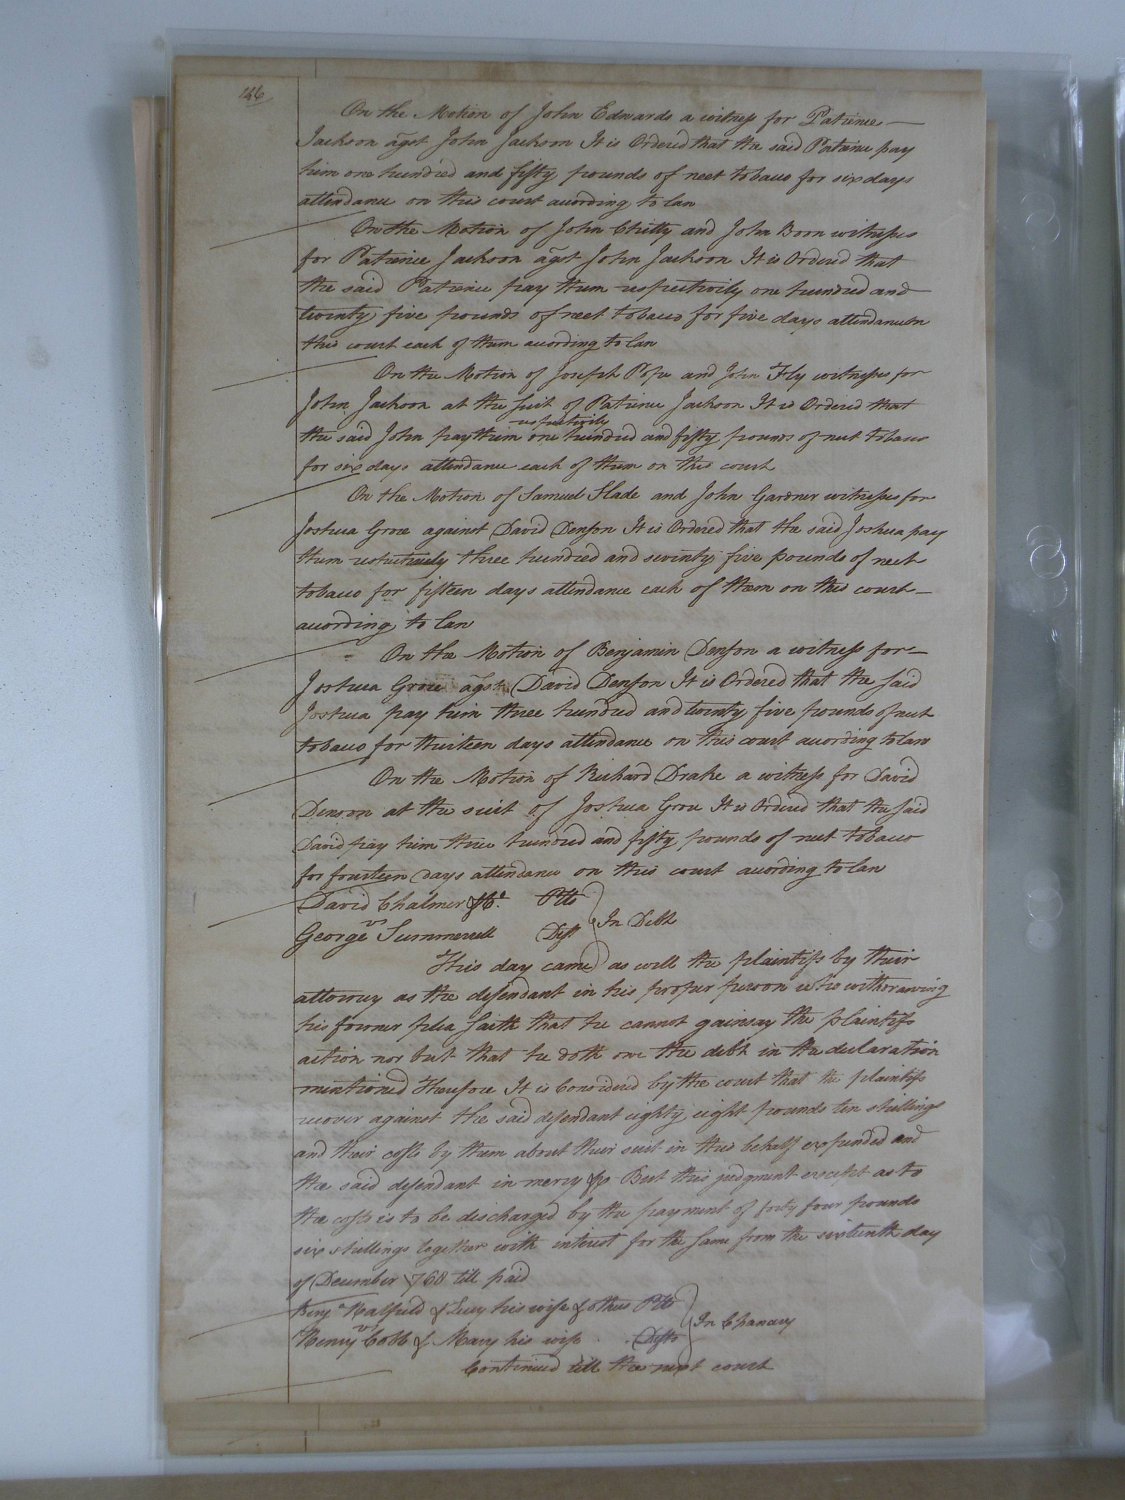 246
On the Motion of John Edwards a witness for Patience
Jackson agst John Jackson It is Ordered that the said Patience pay
him one hundred and fifty pounds of neet tobacco for six days
attendance on this court according to law
On the Motion of John Chitty and John Boon witnesses
for Patience Jackson agst John Jackson It is Ordered that
the said Patience pay them respectively one hundred and
twenty five pounds of neet tobacco for five days attendance on
this court each of them according to law
On the Motion of Joseph Pope and John Fly witnesses for
John Jackson at the suit of Patience Jackson It is Ordered that
respectively
the said John pay them one hundred and fifty pounds of neet tobacco
for six days attendance each of them on this court
On the Motion of Samuel Slade and John Gardner witnesses for
Joshua Grove against David Denson It is Ordered that the said Joshua pay
them respectively three hundred and seventy five pounds of neet
tobacco for fifteen days attendance each of them on this court
according to law
On the Motion of Benjamin Denson a witness for
Joshua Grove agst David Denson It is Ordered that the said
Joshua pay him three hundred and twenty five pounds of neet
tobacco for thirteen days attendance on this court according to law
On the Motion of Richard Drake a witness for David
Denson at the suit of Joshua Grove It is Ordered that the said
David pay him three hundred and fifty pounds of neet tobacco
for fourteen days attendance on this court according to law
David Chalmer & Co. Plts
v
George Summerell Deft
In Debt
This day came as well the plaintifs by their
attorney as the defendant in his proper person who withdrawing
his former plea saith that he cannot gainsay the plaintifs
action nor but that he doth owe the debt in the declaration
mentioned Therefore It is Considered by the court that the plaintifs
recover against the said defendant eighty eight pounds ten shillings
and their costs by them about their suit in this behalf expended and
the said defendant in mercy &c But this judgment except as to
the costs is to be discharged by the payment of forty four pounds
six shillings together with interest for the same from the sixteenth day
of December 1768 till paid
Benja & Lucy his wife & others Plts
v
Henry Cobb & Mary his wife Defts
In Chancery
Continued till the next court